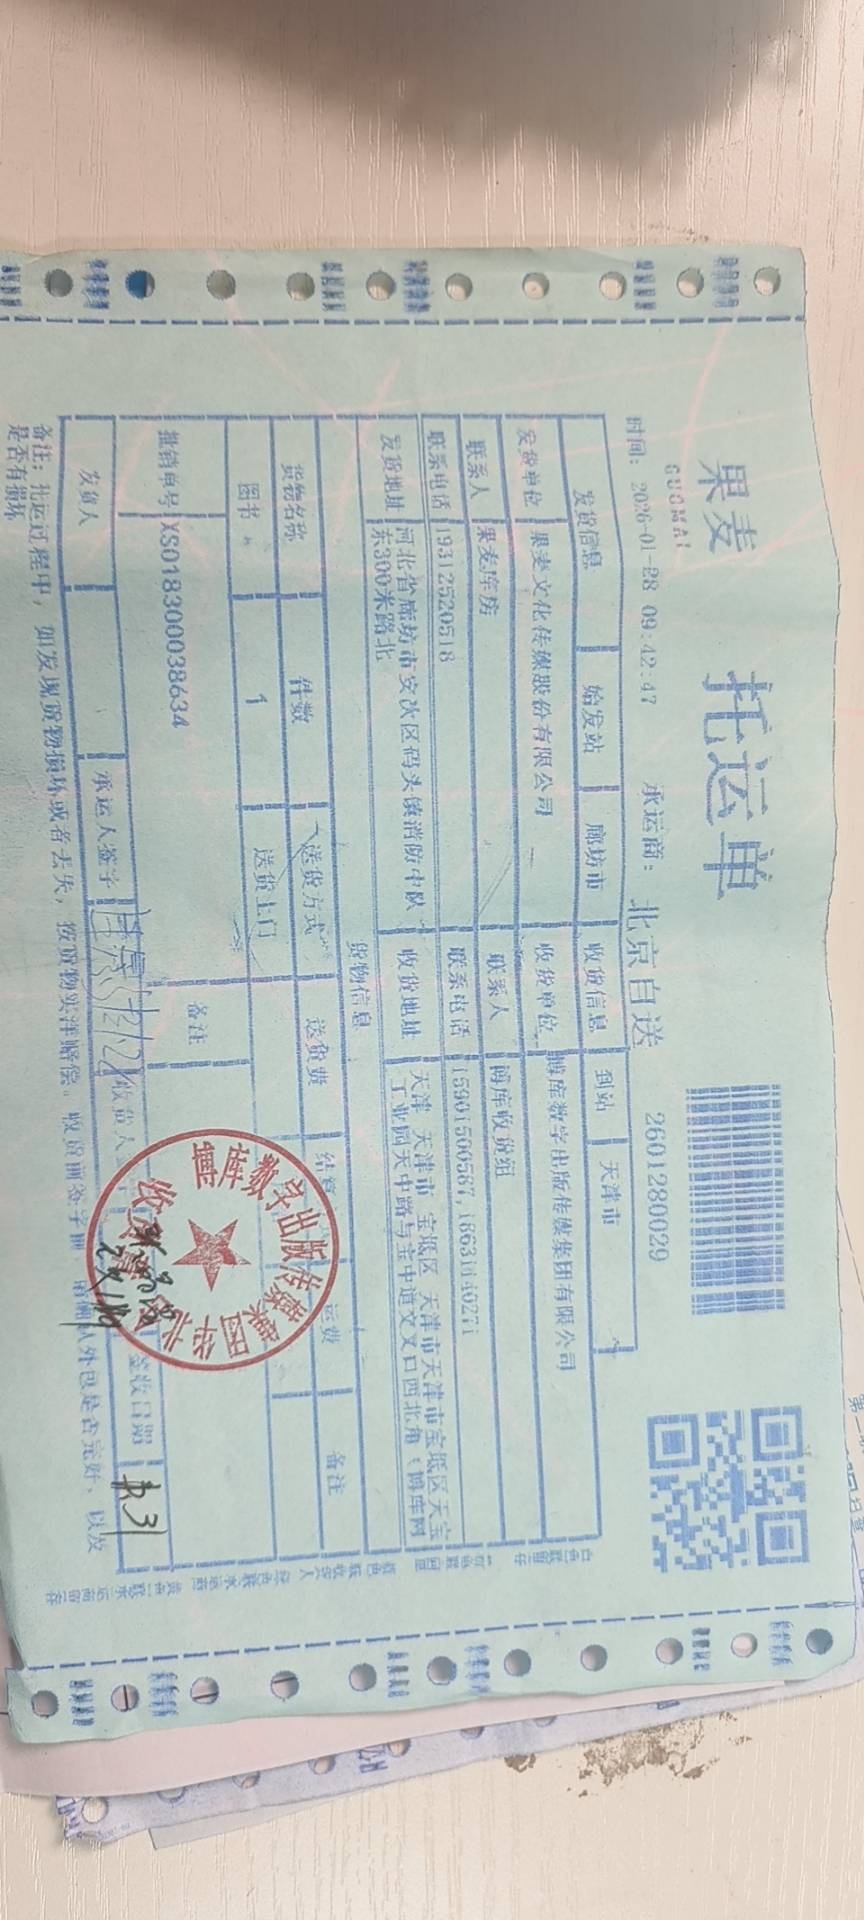 果麦
GUOMAI
托运单
时间: 2026-01-28 09:42:47 承运商: 北京自送 2601280029
发货信息 始发站 廊坊市 收货信息 到站 天津市
发货单位 果麦文化传媒股份有限公司 收货单位 博库数字出版传媒集团有限公司
联系人 果麦库房 联系人 博库收货组
联系电话 19312520518 联系电话 15901500587,18631140271
发货地址 河北省廊坊市安次区码头镇消防中队东300米路北 收货地址 天津 天津市 宝坻区 天津市天津市宝坻区天宝工业园天中路与宝中道交叉口西北角(博库网
货物信息
货物名称 件数 送货方式 送货费 结算 运费 备注
图书 1 送货上门
推销单号 XS018300038634 备注
发货人 承运人签字 收货人 签收日期
备注: 托运过程中, 如发现货物损坏或者丢失, 按货物实洋赔偿。收货前签字前 请确认外包是否完好, 以及
是否有损坏
博库数字出版传媒集团